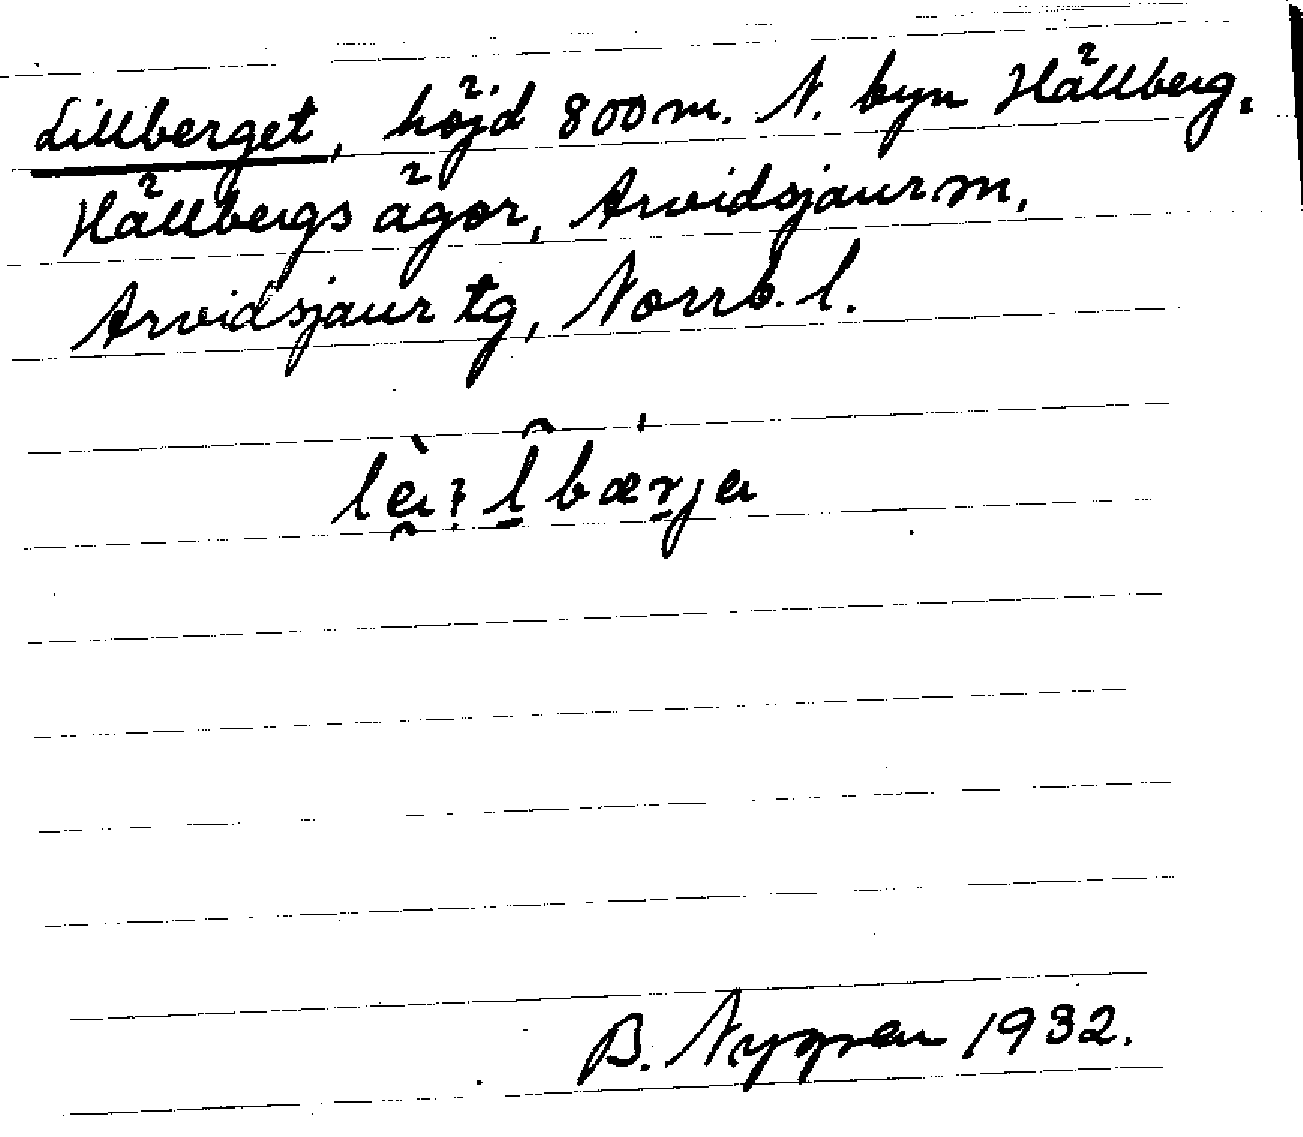 Lillberget, höjd 800 m. N. byn Hällberg.
Hällbergs ägor, Arvidsjaur sn,
Arvidsjaur tg, Norrb. l.
B. Nygren 1932.